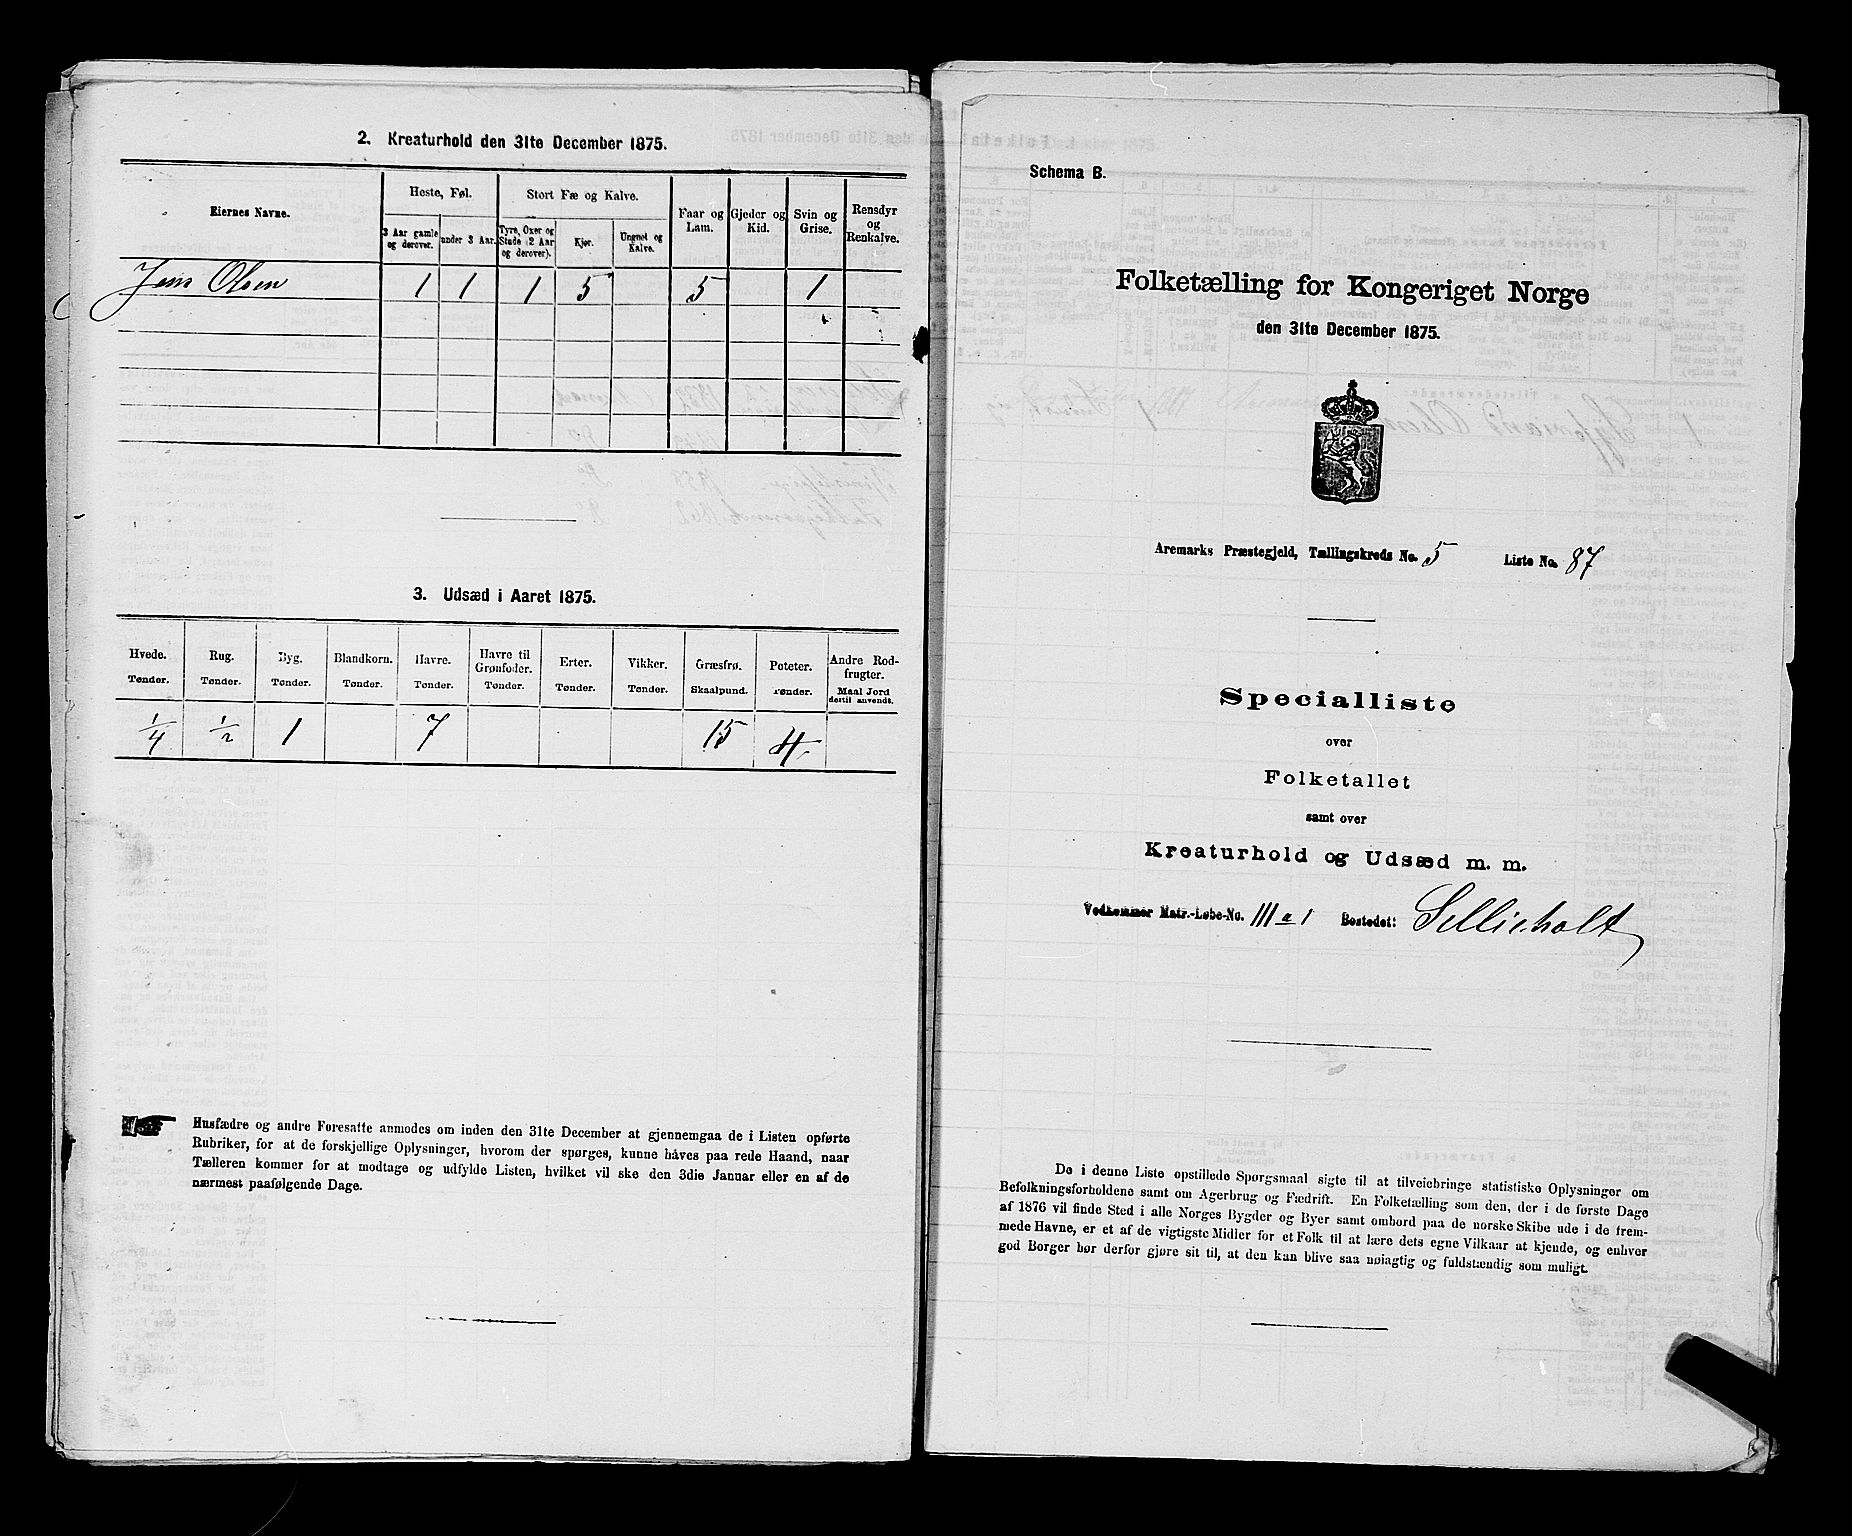 2. Kreaturhold den 31te December 1875.
Eiernes Navne.
Heste, Føl.
3 Aar gamle og derover.
under 3 Aar.
Stort Fæ og Kalve.
Tyre, Oxer og Stude (2 Aar og derover).
Kjør.
Ungnet og Kalve.
Faar og Lam.
Gjeder og Kid.
Svin og Grise.
Rensdyr og Renkalve.
Jens Olsen 1 1 1 5 5 1
3. Udsæd i Aaret 1875.
Hvede. Tønder.
Rug. Tønder.
Byg. Tønder.
Blandkorn. Tønder.
Havre. Tønder.
Havre til Grønfoder. Tønder.
Erter. Tønder.
Vikker. Tønder.
Græsfrø. Skaalpund.
Poteter. Tønder.
Andre Rodfrugter. Maal Jord dertil anvendt.
1/4 1/2 1 7 15 4
Husfædre og andre Foresatte anmodes om inden den 31te December at gjennemgaa de i Listen opførte
Rubriker, for at de forskjellige Oplysninger, hvorom der spørges, kunne haves paa rede Haand, naar
Tælleren kommer for at modtage og udfylde Listen, hvilket vil ske den 3die Januar eller en af de
nærmest paafølgende Dage.
Schema B.
Folketælling for Kongeriget Norge
den 31te December 1875.
Aremarks Præstegjeld, Tællingskreds No. 5 Liste No. 87
Specialliste
over
Folketallet
samt over
Kreaturhold og Udsæd m. m.
Vedkommer Matr.-Løbe-No. 111 a 1 Bostedet: Sellieholt
De i denne Liste opstillede Spørgsmaal sigte til at tilveiebringe statistiske Oplysninger om
Befolkningsforholdene samt om Agerbrug og Fædrift. En Folketælling som den, der i de første Dage
af 1876 vil finde Sted i alle Norges Bygder og Byer samt ombord paa de norske Skibe ude i de frem-
mede Havne, er et af de vigtigste Midler for et Folk til at lære dets egne Vilkaar at kjende, og enhver
god Borger bør derfor gjøre sit til, at den kan blive saa nøiagtig og fuldstændig som muligt.